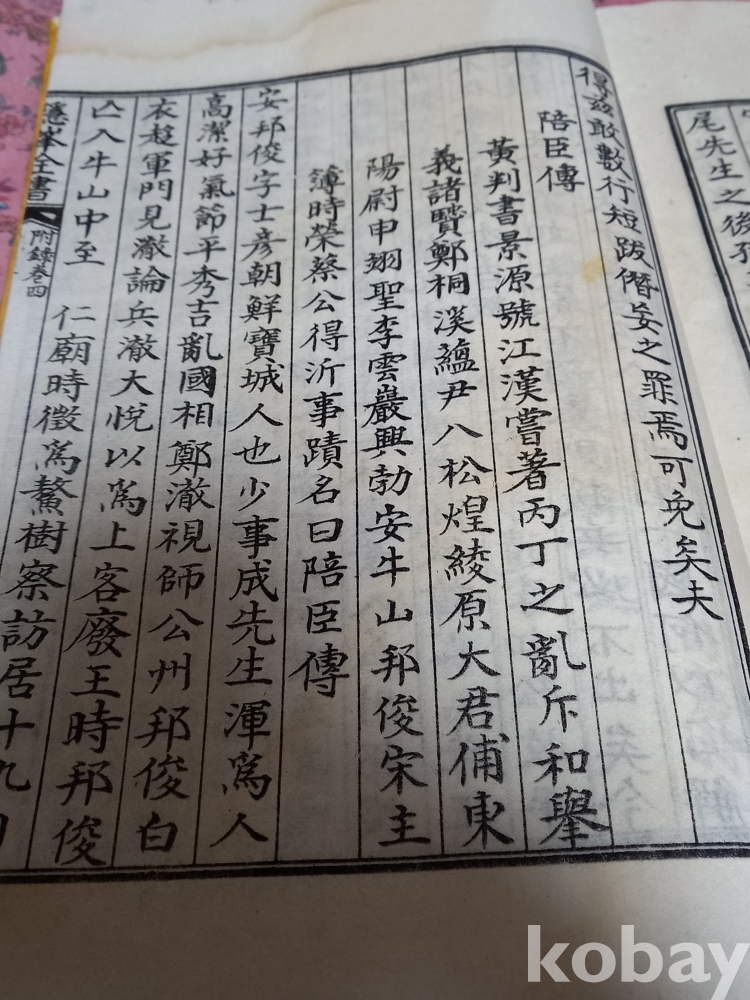 尾先生之後孫
得玆敢數行短跋僭妄之罪焉可免矣夫
陪臣傳
黃判書景源號江漢嘗著丙丁之亂斥和擧
義諸賢鄭桐溪蘊尹八松煌綾原大君俌東
陽尉申翊聖李雲巖興勃安牛山邦俊宋主
簿時榮蔡公得沂事蹟名曰陪臣傳
安邦俊字士彦朝鮮寶城人也少事成先生渾爲人
高潔好氣節平秀吉亂國相鄭澈視師公州邦俊白
衣趍軍門見澈論兵澈大悅以爲上客廢王時邦俊
亾入牛山中至 仁廟時徵爲鰲樹察訪居十九日
隱峯全書 附錄卷四
kobay